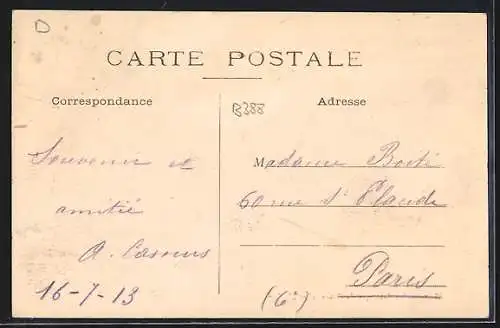 D
CARTE POSTALE
Correspondance
Adresse
B388
Souvenir et
amitié
A.
16-7-13
Madame
60 rue St Placide
Paris
(6e)